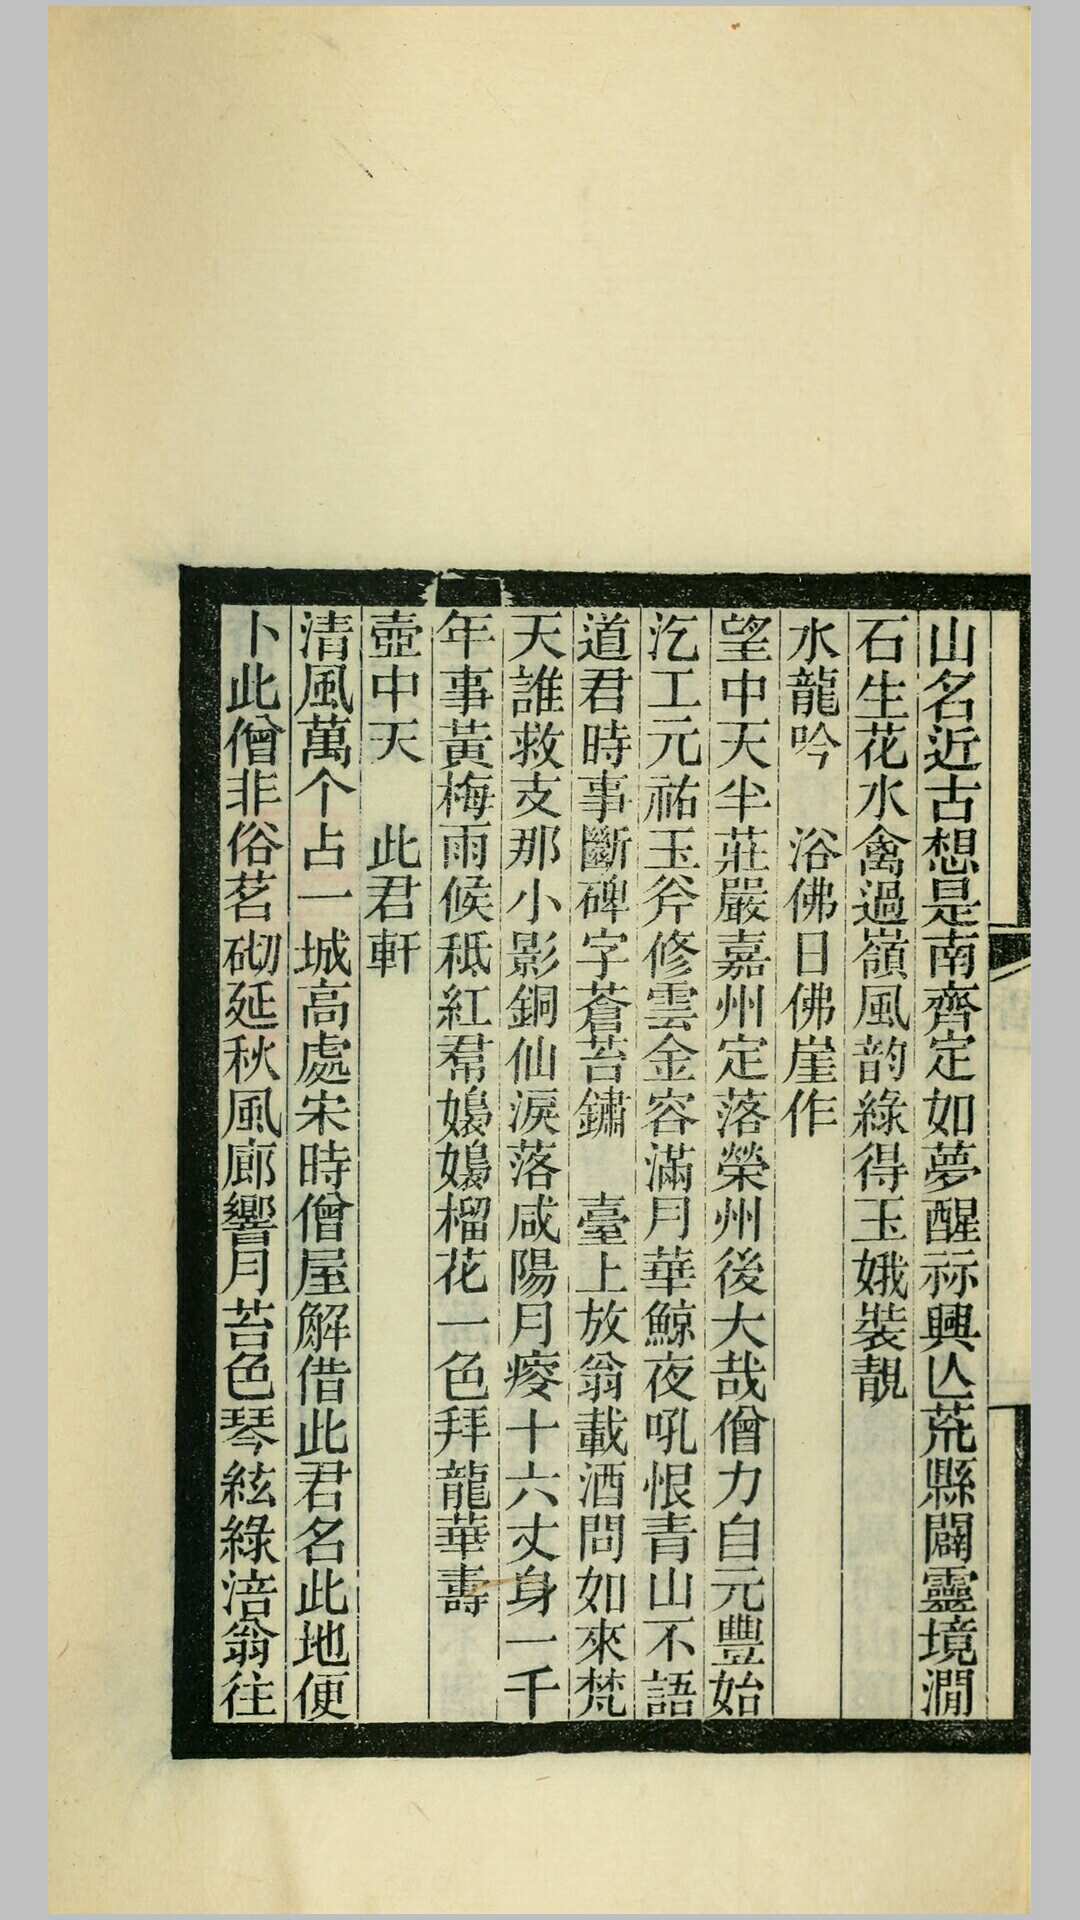 山名近古想是南齊定如夢醒祘興亾荒縣闢靈境澗
石生花水禽過嶺風韵綠得玉娥裝靚
水龍吟　浴佛日佛崖作
望中天半莊嚴嘉州定落榮州後大哉僧力自元豐始
汔工元祐玉斧修雲金容滿月華鯨夜吼恨青山不語
道君時事斷碑字蒼苔鏽　臺上放翁載酒問如來梵
天誰救支那小影銅仙淚落咸陽月瘘十六丈身一千
年事黃梅雨候秪紅帬嬝嬝榴花一色拜龍華壽
壺中天　此君軒
清風萬个占一城高處宋時僧屋解借此君名此地便
卜此僧非俗茗砌延秋風廊響月苔色琴絃綠涪翁往